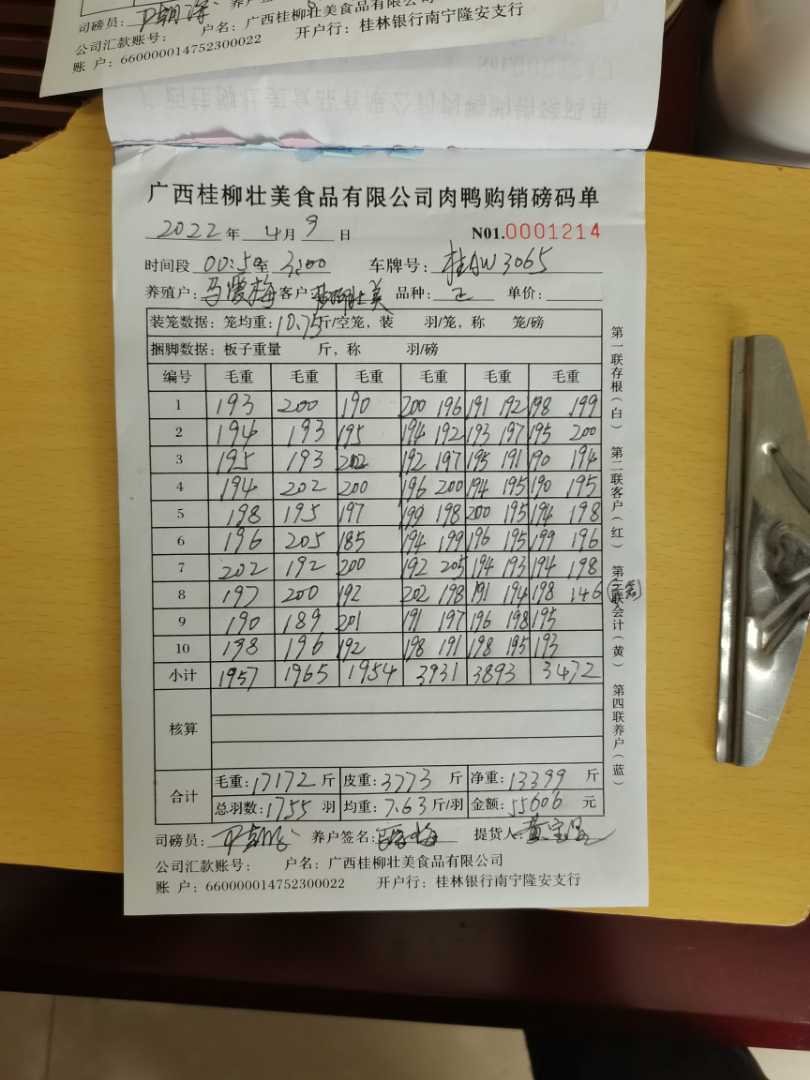 司磅员：
公司汇款账号： 户名：广西桂柳壮美食品有限公司
账 户：660000014752300022 开户行：桂林银行南宁隆安支行
广西桂柳壮美食品有限公司肉鸭购销磅码单
2022 年 4 月 9 日 N01.0001214
时间段 00:50 至 3:00 车牌号：桂AW3065
养殖户：马爱梅 客户：桂柳壮美 品种：正 单价：
装笼数据：笼均重：10.75 斤/空笼，装 羽/笼，称 笼/磅
捆脚数据：板子重量 斤，称 羽/磅
编号 毛重 毛重 毛重 毛重 毛重 毛重
1 193 200 190 200 196 191 192 198 199
2 194 193 195 194 192 193 197 195 200
3 195 193 202 192 197 195 191 190 194
4 194 202 200 196 200 194 195 190 195
5 198 195 197 199 198 200 195 194 198
6 196 205 185 194 199 196 195 199 196
7 202 192 200 192 205 194 193 194 198
8 197 200 192 202 198 191 194 198 146
9 190 189 201 191 197 196 198 195
10 198 196 192 198 191 198 195 193
小计 1957 1965 1954 3931 3893 3472
核算
合计 毛重：17172 斤 皮重：3773 斤 净重：13399 斤
总羽数：1755 羽 均重：7.63 斤/羽 金额：55606 元
司磅员： 养户签名： 提货人：
公司汇款账号： 户名：广西桂柳壮美食品有限公司
账 户：660000014752300022 开户行：桂林银行南宁隆安支行
第一联存根（白） 第二联客户（红） 第三联会计（黄） 第四联养户（蓝）